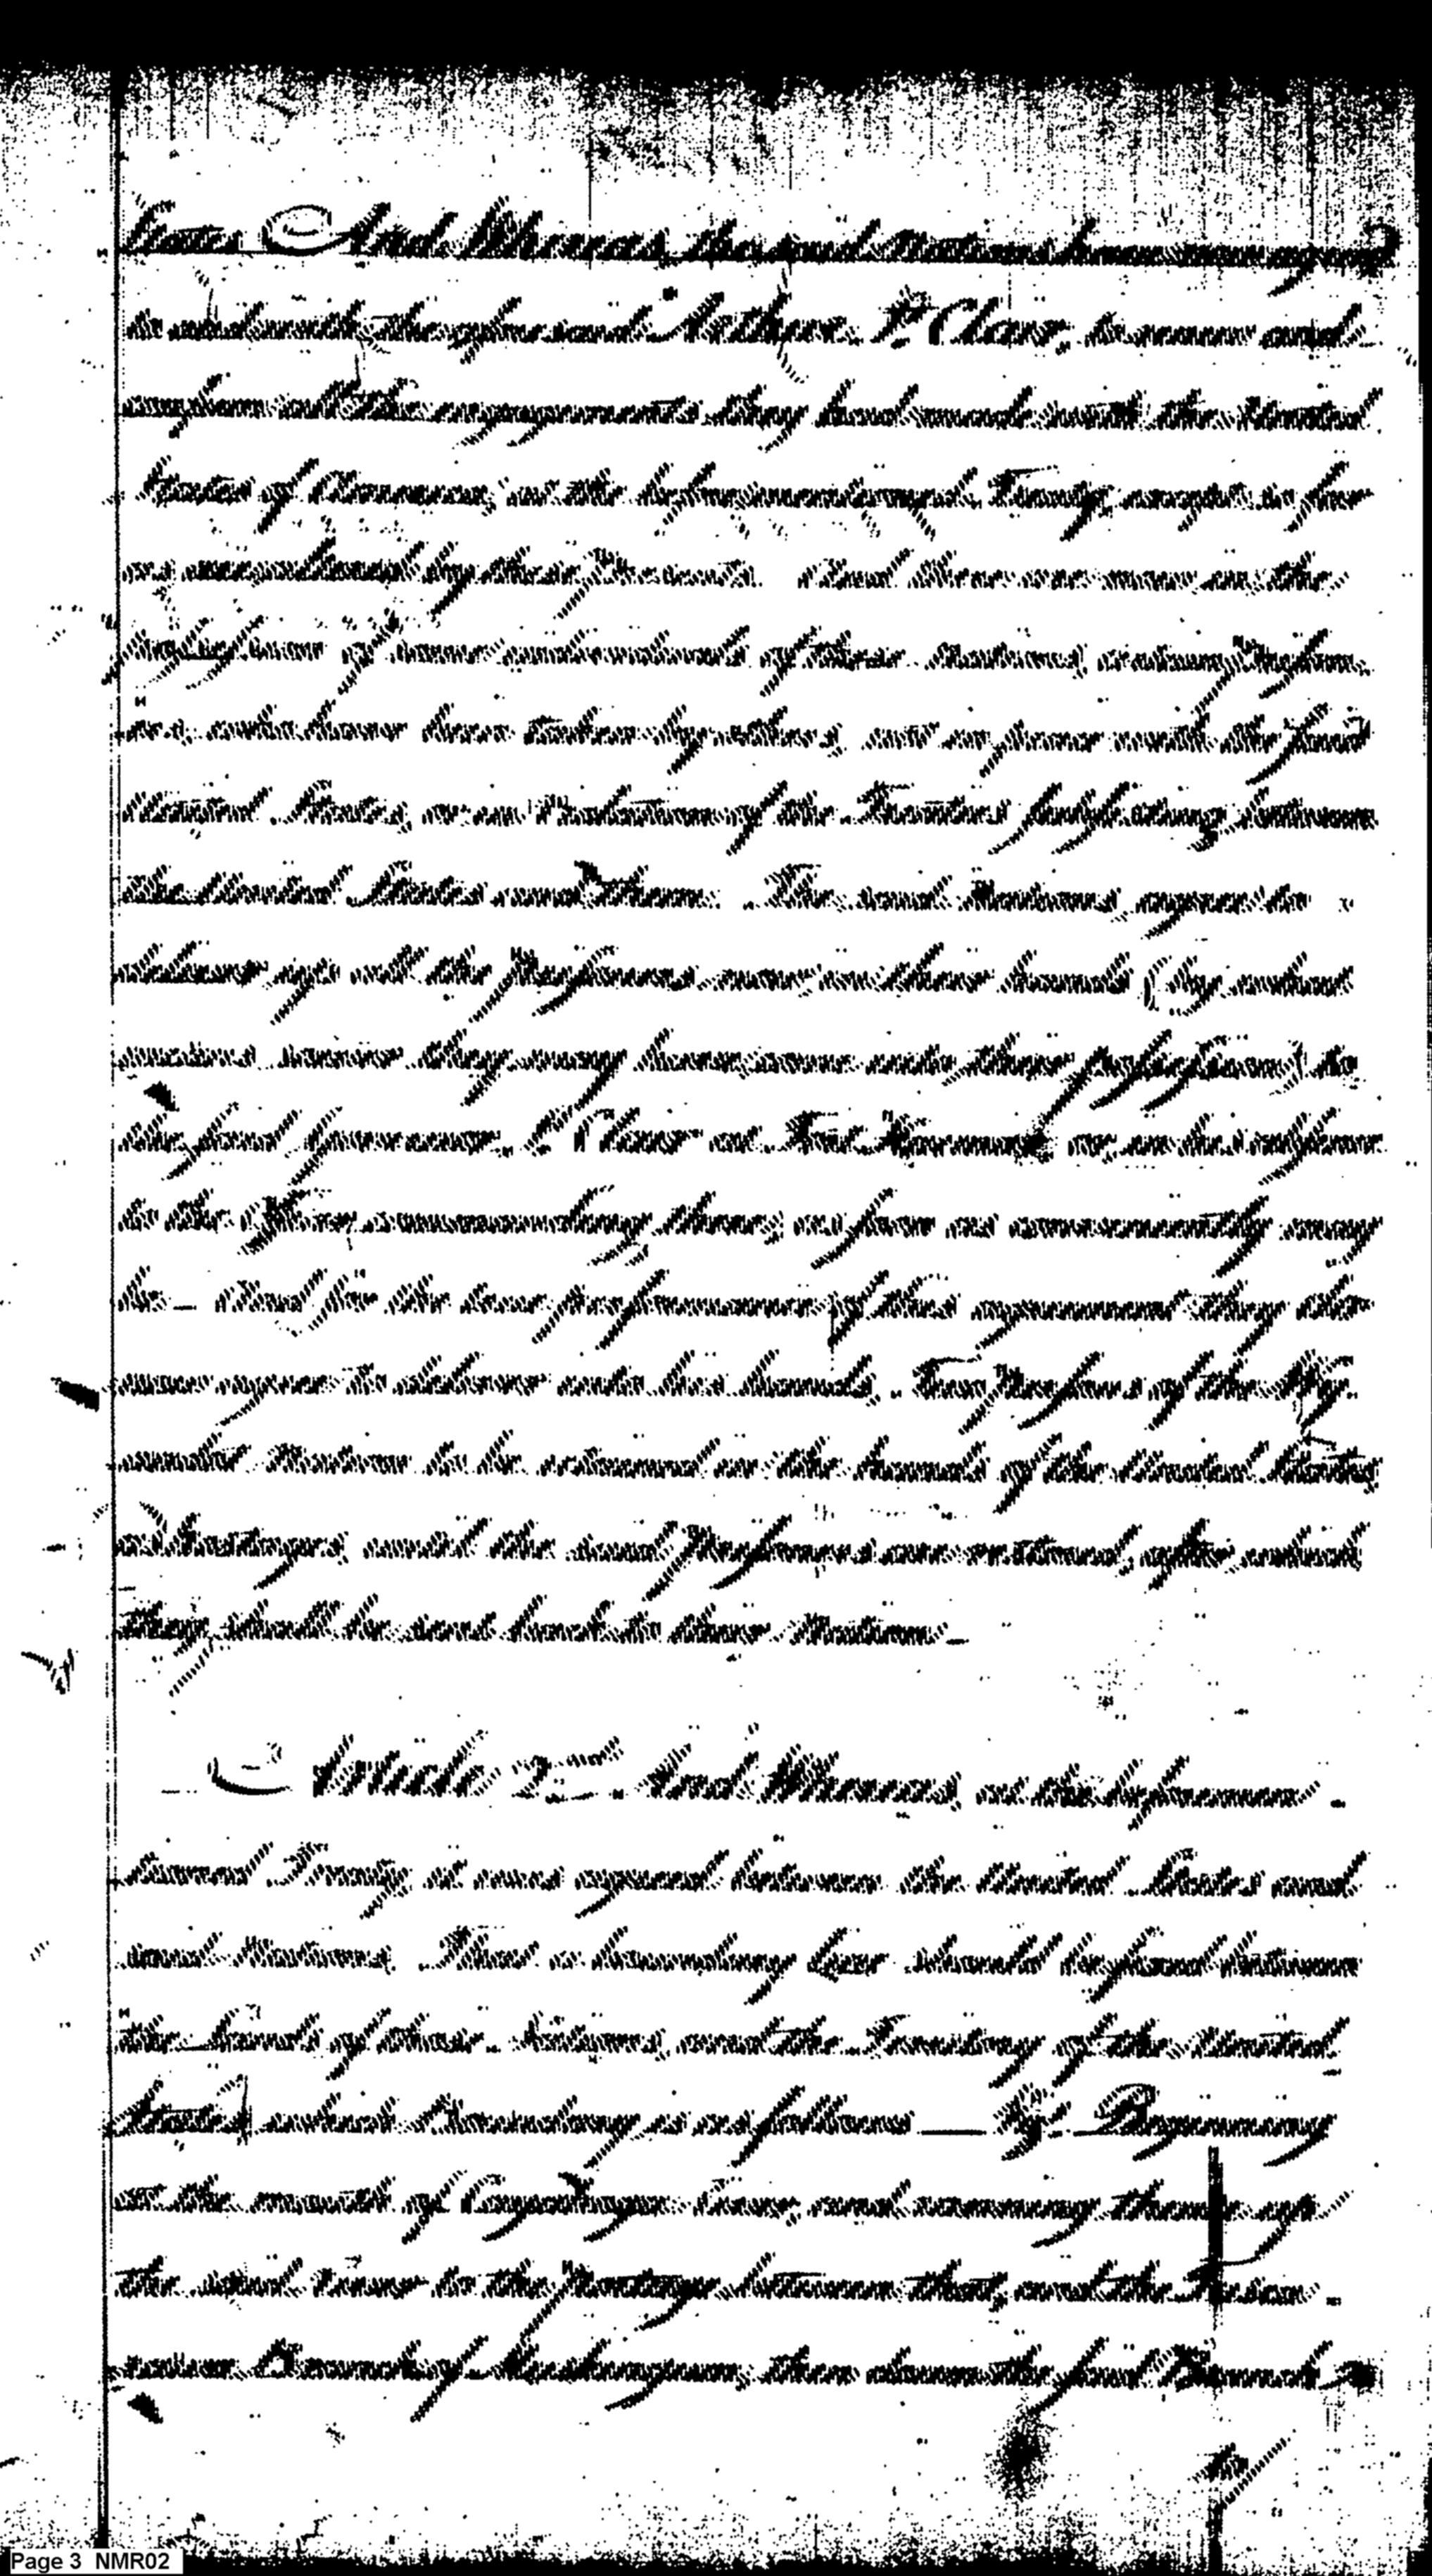 States And Whereas, the said Nations have now agreed
to and with the aforesaid Arthur St Clair, to renew and
confirm all the engagements they had made with the United
States of America, at the beforementioned Treaty, except so far
as are altered by these Presents. And there are now in the
possession of some individuals of these Nations, certain Prison
ers, who have been taken by others, not in peace with the said
United States, or in violation of the Treaties subsisting between
the United States and them. The said Nations, agree to
deliver up all the Prisoners now in their hands (by what
means soever they may have come into their possession) to
the said Governor St Clair at Fort Harmar, or in his absence
to the Officer commanding there, as soon as conveniently may
be — And for the true performance of this agreement they do
now agree to deliver into his hands, Two Persons of the Wy-
andot Nation to be retained in the hands of the United States,
as Hostages, until the said Prisoners are restored, after which
they shall be sent back to their Nation —
Article 2nd. And Whereas, at the before men-
tioned Treaty, it was agreed between the United States and
said Nations, That a boundary line should be fixed between
the lands of those Nations, and the Territory of the United
States, which Boundary is as follows — Vizt. Beginning
at the mouth of Cayahoga River, and running thence up
the said River to the Portage between that, and the Tusca-
rawa Branch of Muskingum, then down the said Branch to
Page 3 NMR02